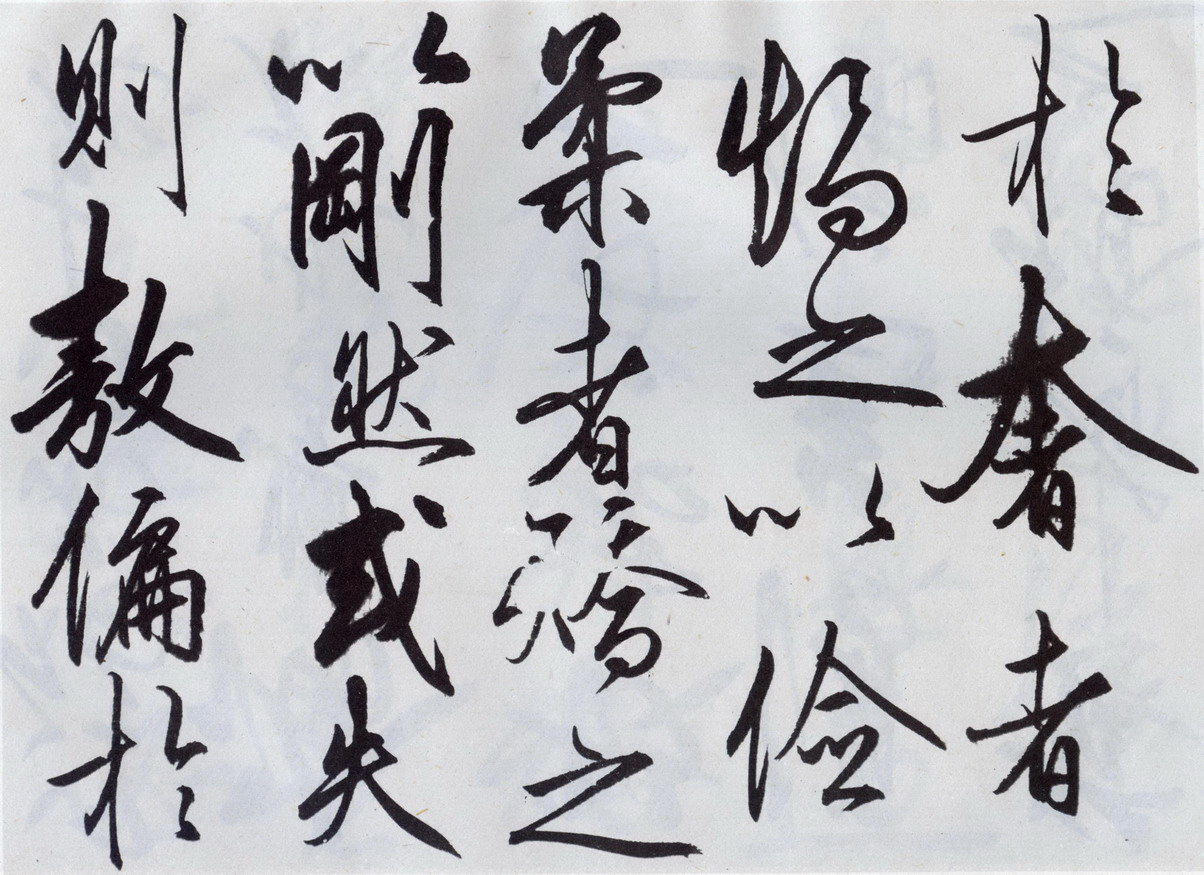 於奢者
之以儉
柔者矯之
以剛然或失
則敖偏於